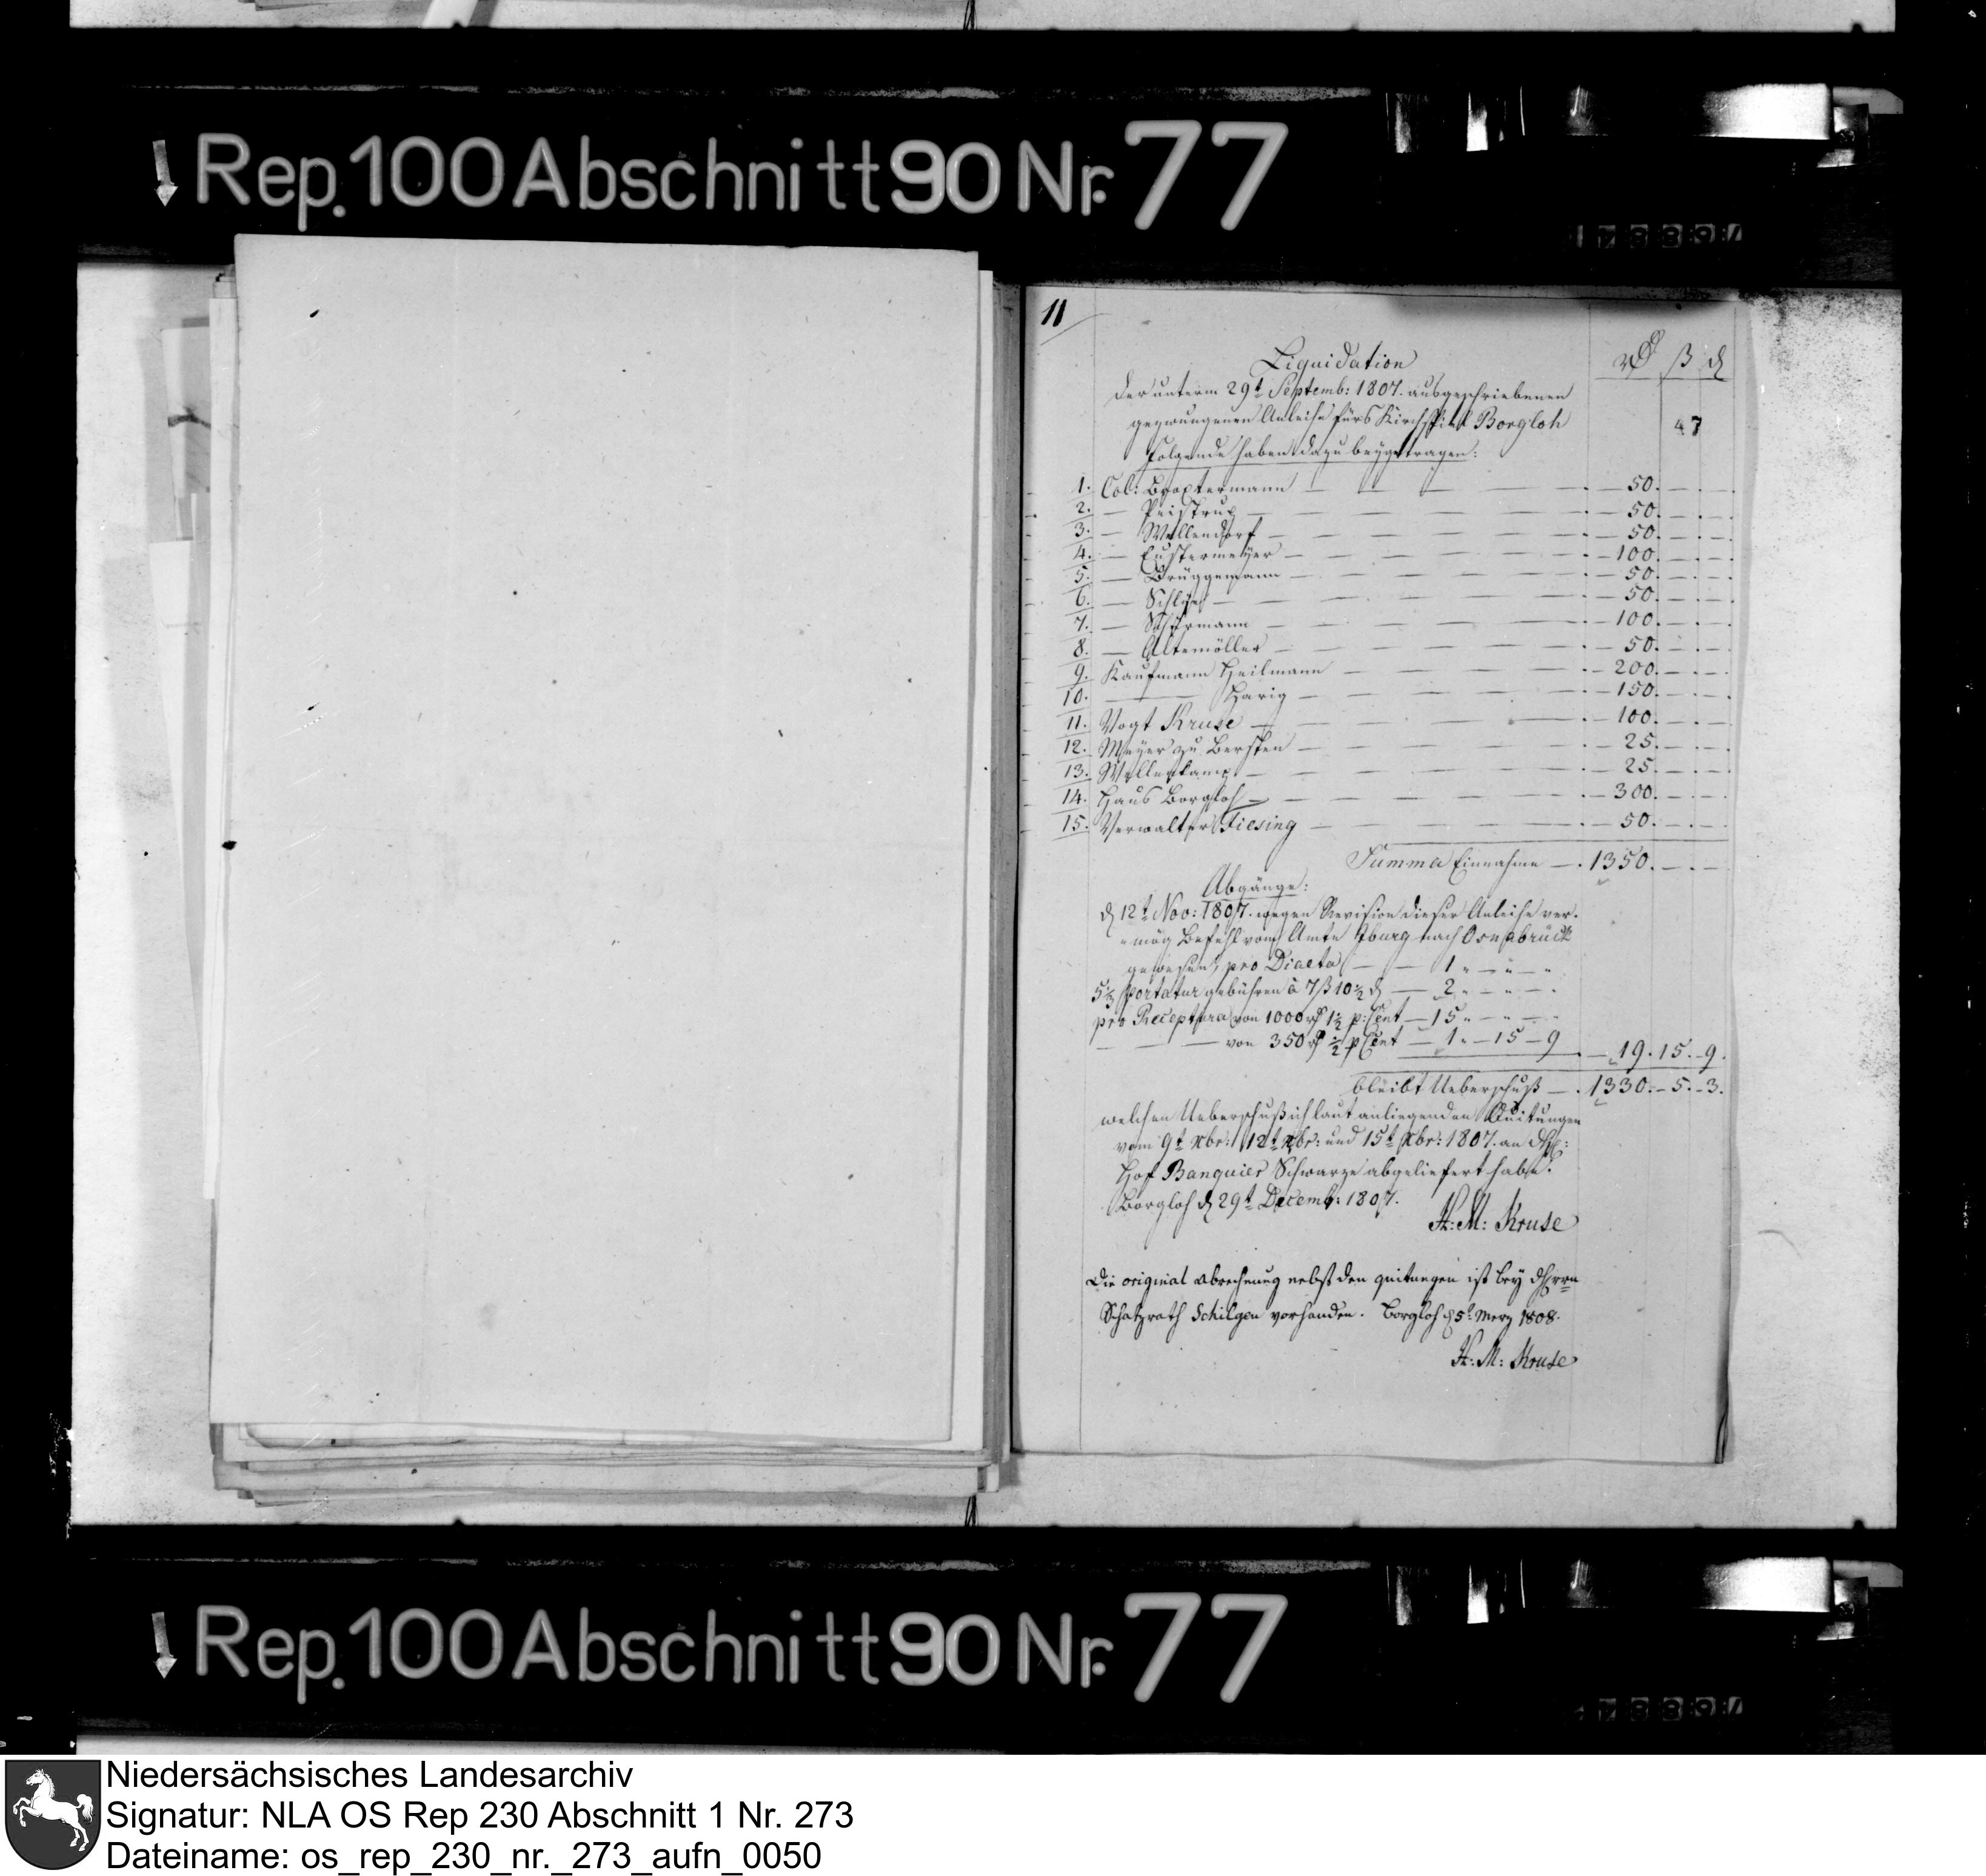 Rep. 100 Abschnitt 90 Nr. 77
11
Liquidation
Rth ß d
der unterm 29t Septemb: 1807. ausgeschriebenen
gezwungenen Anleihe fürs Kirchspiel Borgloh
47
folgende haben dazu beygetragen:
1. Col: Broxtermann — 50. — . —
2. — Peistrup — 50. — . —
3. — Wellendorf — 50. — . —
4. — Eustermeyer — 100. — . —
5. — Brüggemann — 50. — . —
6. — — 50. — . —
7. — — 100. — . —
8. — Altemöller — 50. — . —
9. Kaufmann Heilmann — 200. — . —
10. — Harig — 150. — . —
11. Vogt Kruse — 100. — . —
12. Meyer zu Bersten — 25. — . —
13. Wellenkamp — 25. — . —
14. Haus Borgloh — 300. — . —
15. Verwalter Tiesing — 50. — . —
Summa Einnahme — . 1350. — . —
Abgänge:
d 12t Nov: 1807. wegen Revision dieser Anleihe ver-
mög Befehl vom Amte Iburg nach Osnabrück
gewesen, pro Diaeta — — 1 " — " — "
5 1/3 portatur gebühren à 7 ß 10 1/2 d — 2 " — " — "
pro Receptura von 1000 rth 1 1/2 p: Cent — 15 " — " — "
— — von 350 rth 1/2 p Cent — 1 " — 15 — 9 — 19. 15. 9.
bleibt Ueberschuß — . 1330. — 5. — 3.
welchen Ueberschuß ich laut anliegenden Quitungen
vom 9t xbr: 12t xbr: und 15t xbr: 1807. an dH:
Hof Banquier Schwarze abgeliefert habe.
Borgloh d 29t Decemb: 1807.
H: M: Kruse
Die original Abrechnung nebst den quitungen ist bey dHerrn
Schatzrath Schilgen vorhanden. Borgloh d 5t Merz 1808.
H: M: Kruse
Rep. 100 Abschnitt 90 Nr. 77
Niedersächsisches Landesarchiv
Signatur: NLA OS Rep 230 Abschnitt 1 Nr. 273
Dateiname: os_rep_230_nr._273_aufn_0050